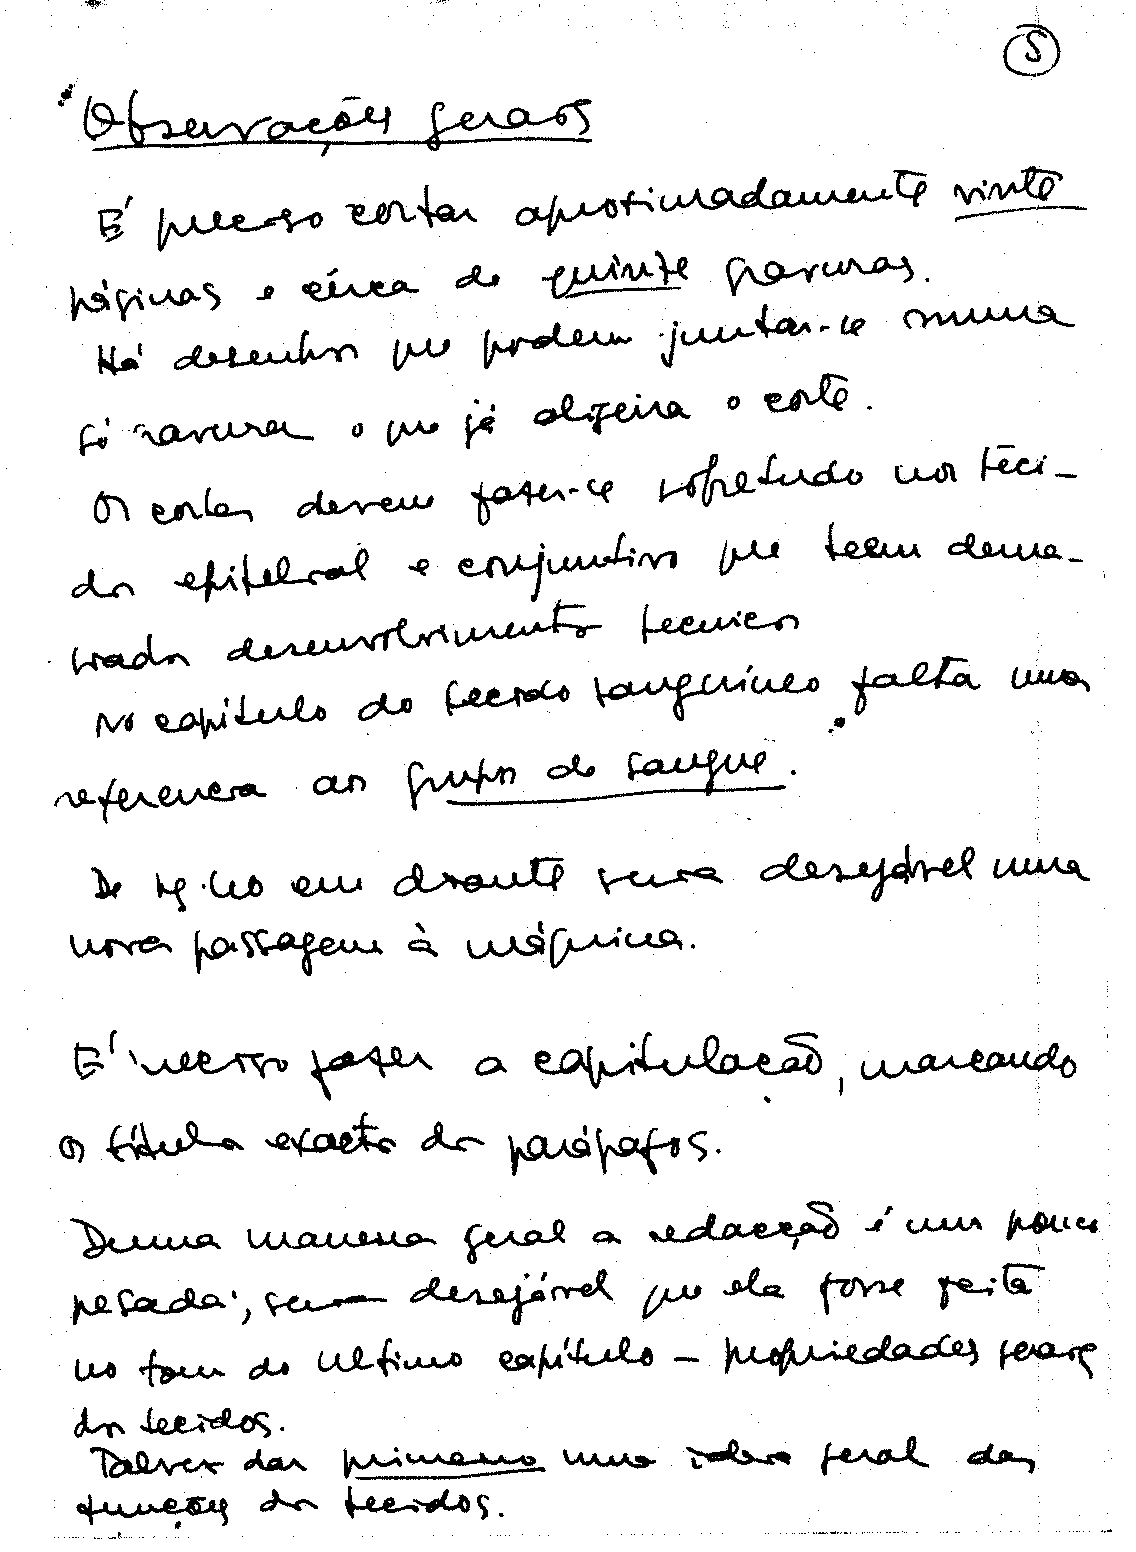 5
Observações gerais
É preciso cortar aproximadamente vinte
páginas e cêrca de quinze gravuras.
Há desenhos que podem juntar-se numa
só gravura o que já aligeira o corte.
Os cortes devem fazer-se sobretudo nos teci-
dos epitelial e conjuntivo que teem dema-
siado desenvolvimento tecnico
No capítulo do tecido sanguíneo falta uma
referencia aos grupos de sangue.
De pg. 60 em diante seria desejável uma
nova passagem à máquina.
É necesso fazer a capitulação, marcando
os títulos exactos dos parágrafos.
Duma maneira geral a redacção é um pouco
pesada, seria desejável que ela fosse feita
no tom do ultimo capítulo – propriedades gerais
dos tecidos.
Talvez dar primeiro uma ideia geral das
funções dos tecidos.